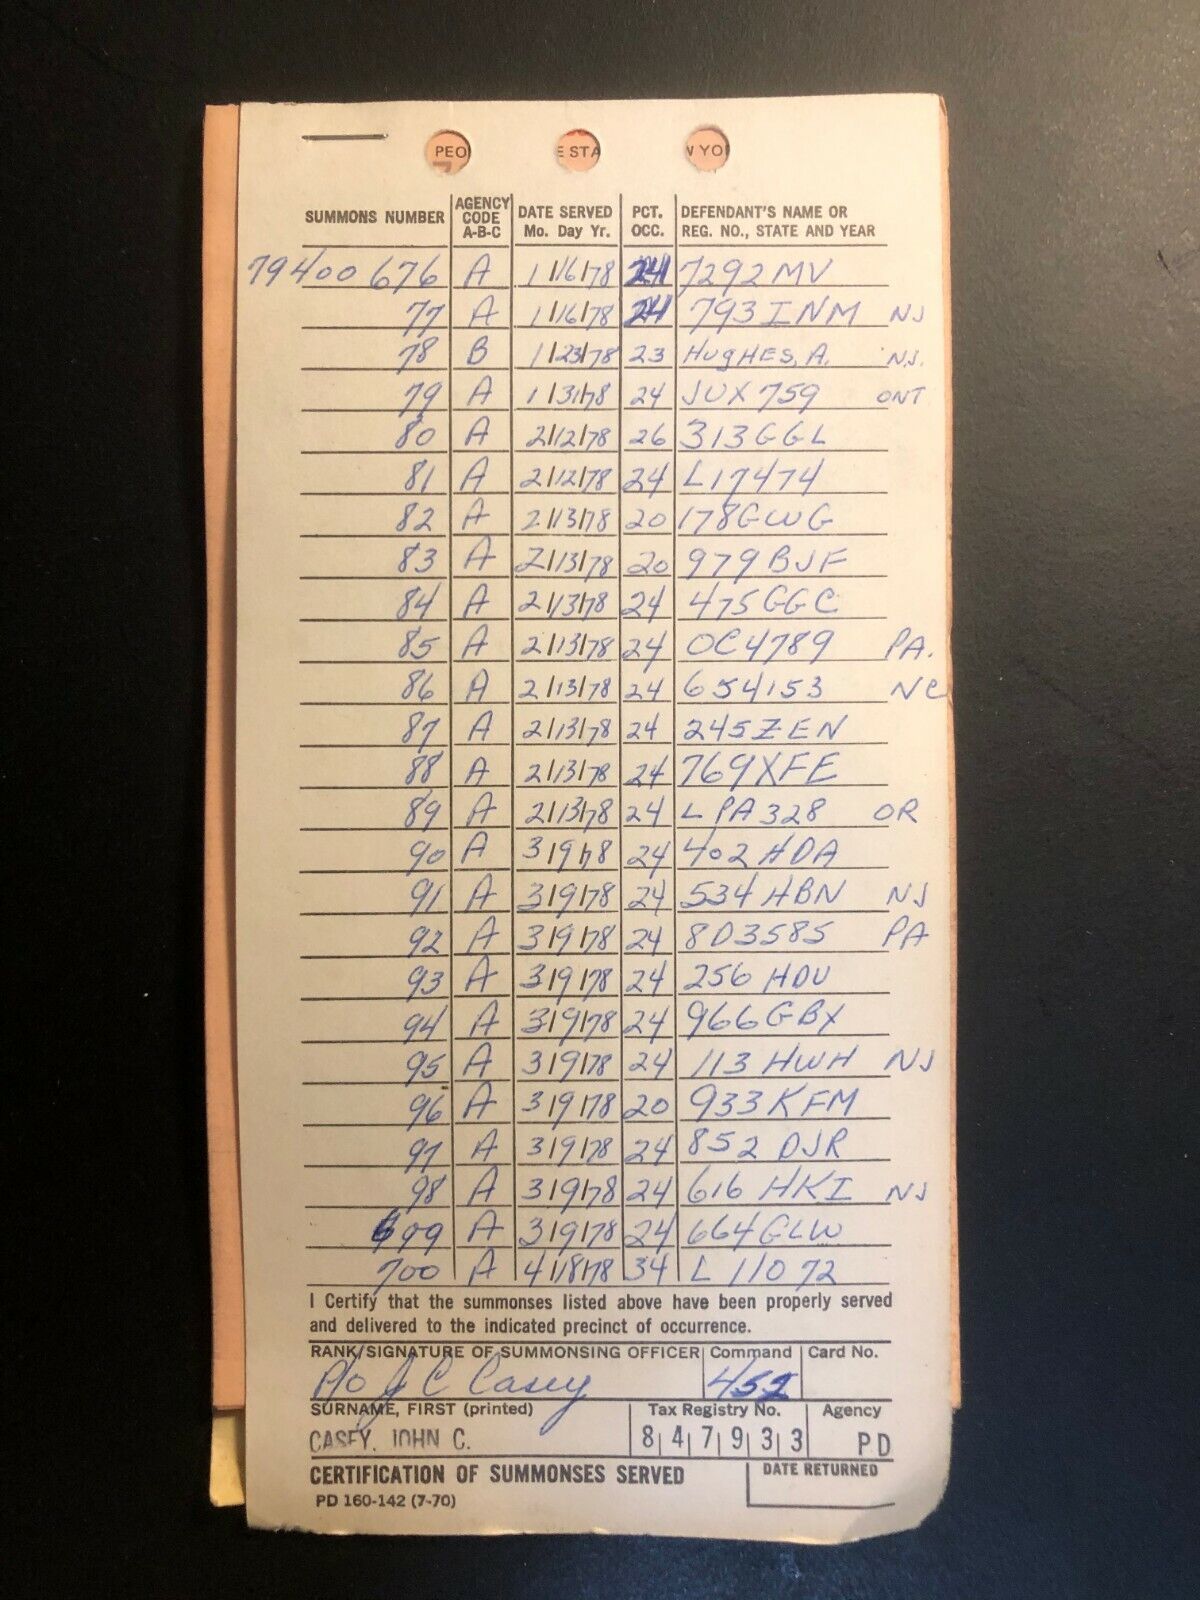 PEO E STA W YO
SUMMONS NUMBER AGENCY CODE A-B-C DATE SERVED Mo. Day Yr. PCT. OCC. DEFENDANT'S NAME OR REG. NO., STATE AND YEAR
79400 676 A 1/16/78 24 7292MV
77 A 1/16/78 24 793 INM NJ
78 B 1/23/78 23 HUgHES, A. N.J.
79 A 1/31/78 24 JUX 759 ONT
80 A 2/12/78 26 313GGL
81 A 2/12/78 24 L17474
82 A 2/13/78 20 178GWG
83 A 2/13/78 20 979 BJF
84 A 2/13/78 24 475GGC
85 A 2/13/78 24 OC4789 PA.
86 A 2/13/78 24 654153 NC
87 A 2/13/78 24 245ZEN
88 A 2/13/78 24 769XFE
89 A 2/13/78 24 L PA 328 OR
90 A 3/9/78 24 402 HDA
91 A 3/9/78 24 534 HBN NJ
92 A 3/9/78 24 8D3585 PA
93 A 3/9/78 24 256 HDU
94 A 3/9/78 24 966GBX
95 A 3/9/78 24 113 HWH NJ
96 A 3/9/78 20 933 KFM
97 A 3/9/78 24 852 DJR
98 A 3/9/78 24 616 HKI NJ
699 A 3/9/78 24 664GLW
700 A 4/18/78 34 L 11072
I Certify that the summonses listed above have been properly served
and delivered to the indicated precinct of occurrence.
RANK/SIGNATURE OF SUMMONSING OFFICER Command Card No.
P/o J C Casey 452
SURNAME, FIRST (printed) Tax Registry No. Agency
CASEY, JOHN C. 847933 PD
CERTIFICATION OF SUMMONSES SERVED DATE RETURNED
PD 160-142 (7-70)